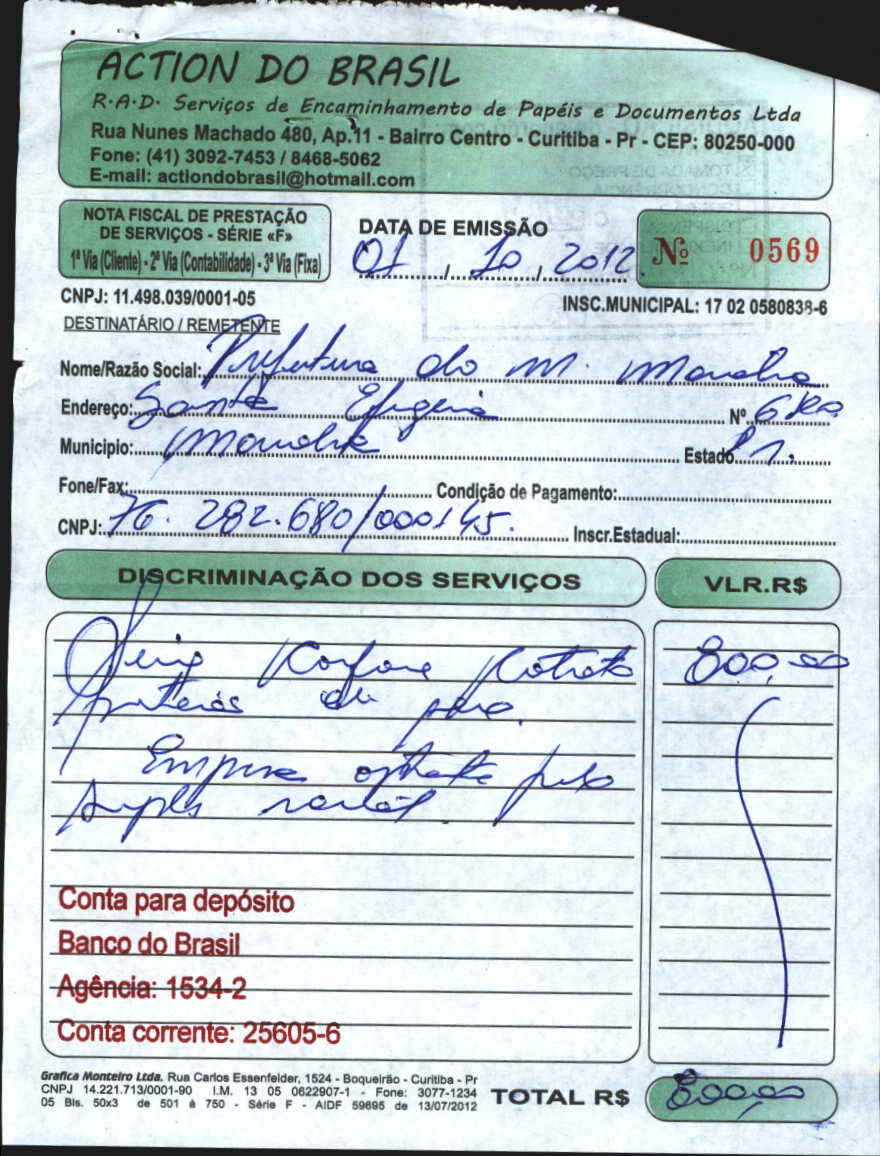 ACTION DO BRASIL
R·A·D· Serviços de Encaminhamento de Papéis e Documentos Ltda
Rua Nunes Machado 480, Ap.11 - Bairro Centro - Curitiba - Pr - CEP: 80250-000
Fone: (41) 3092-7453 / 8468-5062
E-mail: actiondobrasil@hotmail.com
NOTA FISCAL DE PRESTAÇÃO
DE SERVIÇOS - SÉRIE «F»
1ª Via (Cliente) - 2ª Via (Contabilidade) - 3ª Via (Fixa)
DATA DE EMISSÃO
01 / 10 / 2012
Nº 0569
CNPJ: 11.498.039/0001-05
INSC.MUNICIPAL: 17 02 0580838-6
DESTINATÁRIO / REMETENTE
Nome/Razão Social: Prefeitura do M.
Endereço: Santa Nº
Município: Estado
Fone/Fax: Condição de Pagamento:
CNPJ: 76.282.680/000145. Inscr.Estadual:
DISCRIMINAÇÃO DOS SERVIÇOS VLR.R$
800,00
Empresa optante pelo
simples
Conta para depósito
Banco do Brasil
Agência: 1534-2
Conta corrente: 25605-6
Grafica Monteiro Ltda. Rua Carlos Essenfelder, 1524 - Boqueirão - Curitiba - Pr
CNPJ 14.221.713/0001-90 I.M. 13 05 0622907-1 - Fone: 3077-1234
05 Bls. 50x3 de 501 à 750 - Série F - AIDF 59695 de 13/07/2012
TOTAL R$ 800,00